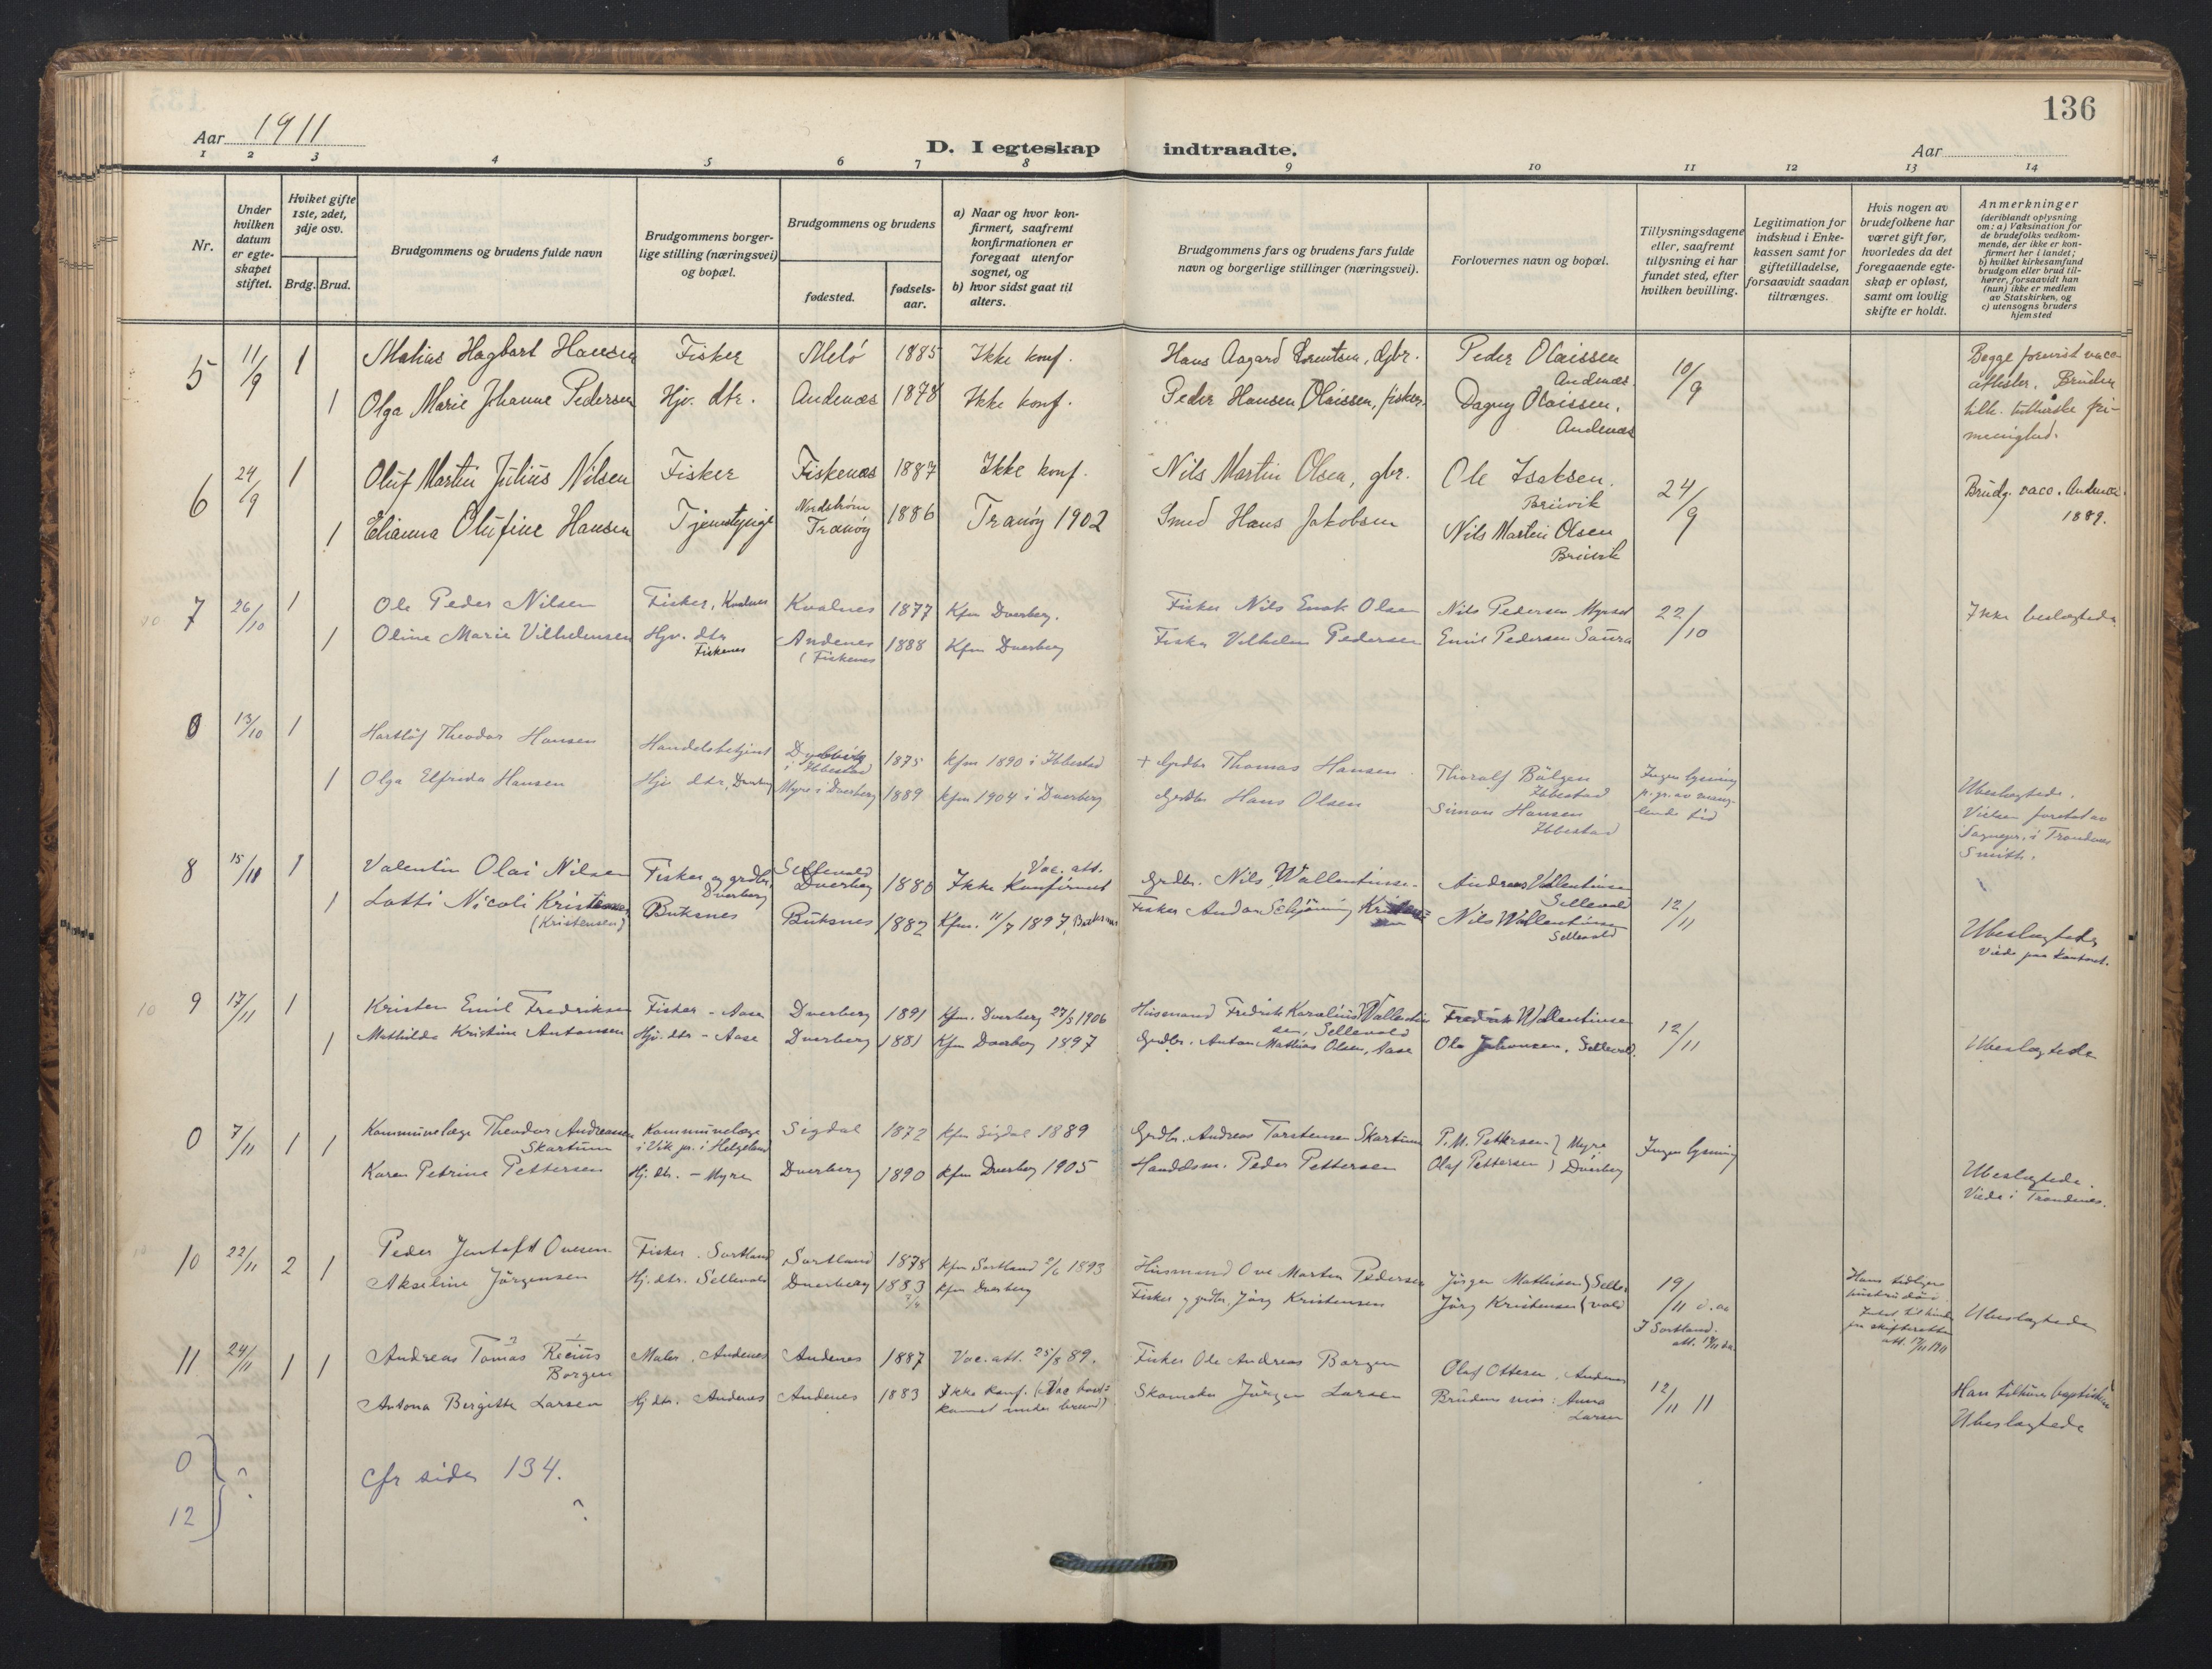 136
Aar 1911
D. I egteskap indtraadte.
Aar
1 2 3 4 5 6 7 8 9 10 11 12 13 14
Nr.
Under hvilken datum er egteskapet stiftet.
Hviket gifte 1ste, 2det, 3dje osv.
Brdg. Brud.
Brudgommens og brudens fulde navn
Brudgommens borgerlige stilling (næringsvei) og bopæl.
Brudgommens og brudens
fødested.
fødselsaar.
a) Naar og hvor konfirmert, saafremt konfirmationen er foregaat utenfor sognet, og
b) hvor sidst gaat til alters.
Brudgommens fars og brudens fars fulde navn og borgerlige stillinger (næringsvei).
Forlovernes navn og bopæl.
Tillysningsdagene eller, saafremt tillysning ei har fundet sted, efter hvilken bevilling.
Legitimation for indskud i Enkekassen samt for giftetilladelse, forsaavidt saadan tiltrænges.
Hvis nogen av brudefolkene har været gift før, hvorledes da det foregaaende egteskap er opløst, samt om lovlig skifte er holdt.
Anmerkninger (deriblandt oplysning om: a) Vaksination for de brudefolks vedkommende, der ikke er konfirmert her i landet; b) hvilket kirkesamfund brudgom eller brud tilhører, forsaavidt han (hun) ikke er medlem av Statskirken, og c) utensogns bruders hjemsted
5 11/9 1 Matias Hagbart Hansen Fisker Melö 1885 Ikke konf. Hans Aagard Lorentsen, Gbr. Peder Olaissen Andenæs 10/9 Begge forevist vacc. attester. Bruden
1 Olga Marie Johanne Pedersen Hjv. dtr. Andenæs 1878 Ikke konf. Peder Hansen Olaissen, fisker. Dagny Olaissen, Andenæs tilh. lutherske frimenighed.
6 24/9 1 Oluf Martin Julius Nilsen Fisker Fiskenæs 1887 Ikke konf. Nils Martin Olsen, gbr. Ole Isaksen. Breivik 24/9 Brudg. vacc. Andenæs 1889.
1 Elianna Olufine Hansen Tjenestepige Nordstrøm Tranöy 1886 Tranöy 1902 Smed Hans Jakobsen Nils Martin Olsen Breivik
7 26/10 1 Ole Peder Nilsen Fisker, Kvalnes Kvalnes 1877 Kfm Dverberg. Fisker Nils Enok Olsen Nils Pedersen Myrset 22/10 Ikke beslægtede
1 Oline Marie Vilhelmsen Hjv. dtr Fiskenes Andenes (Fiskenes 1888 Kfm Dverberg Fisker Vilhelm Pedersen Emil Pedersen Saura
0 13/10 1 Hartlöf Theodor Hansen Handelsbetjent i Ibbestad 1875 kfm 1890 i Ibbestad + Grdbr Thomas Hansen. Thoralf Bülgen Ibbestad Ingen lysning p. gr. av manglende tid
1 Olga Elfrida Hansen Hjv dtr, Dverberg Myre i Dverberg 1889 kfm 1904 i Dverberg Grdbr Hans Olsen Simon Hansen Ibbestad Ubeslægtede. Vielsen foretat av Sognepr. i Trondenes Smith.
8 15/11 1 Valentin Olai Nilsen Fisker og grdbr, Dverberg Sellevold Dverberg 1880 Vac. att. Ikke Konfirmert Grdbr. Nils Wallentinse. Andreas Vallentinsen Sellevold 12/11
1 Lotti Nicoli Kristensen (Kristensen) Buksnes Buksnes 1882 Kfm. 11/7 1897, Buksnes Fisker Andor Schjöning Kristensen Nils Wallentinsen Sellevold Ubeslægtede Viede paa kontoret.
10 9 17/11 1 Kristen Emil Fredriksen Fisker - Aase Dverberg 1891 Kfm. Dverberg 27/5 1906 Husmand Fredrik Karolius Wallentinsen, Sellevold Fredrik Wallentinsen 12/11
1 Mathilde Kristine Antonsen Hjv. dtr - Aase Dverberg 1881 Kfm Dverberg 1897 Grdbr. Anton Mathias Olsen, Aase Ole Johansen, Sellevold. Ubeslægtede
0 7/11 1 1 Kommunelæge Theodor Andreassen Skartum Kommunelæge i Vik pr. i Helgeland Sigdal 1872 kfm Sigdal 1889 Grdbr. Andreas Torstensen Skartum P. M. Pettersen } Myre Ingen lysning
Karen Petrine Pettersen Hj. dtr. - Myre Dverberg 1890 kfm Dverberg 1905 Handelsm. Peder Pettersen Olaf Pettersen } Dverberg Ubeslægtede. Viede i Trondenes.
10 22/11 2 1 Peder Jentoft Ovesen Fisker. Sortland Sortland 1878 kfm Sortland 2/6 1893 Husmand Ove Martin Pedersen Jörgen Mathisen } Sellevold 19/11 d. aa I Sortland. Hans tidligere
Akseline Jörgensen Hj. dtr. Sellevold Dverberg 1883 kfm Dverberg Fisker og grdbr. Jörg Kristensen Jörg Kristensen } Ubeslægtede
11 24/11 1 1 Andreas Tomas Borgen Maler. Andenes Andenes 1887 Vac. att. 25/8 89. Fisker Ole Andreas Borgen Olaf Ottesen, Andenes 12/11 11
Antona Birgitte Larsen Hj. dtr. Andenes Andenes 1883 Ikke konf. Skomaker Jörgen Larsen Brudens mor: Anna Larsen Han tilhører baptisterne Ubeslægtede
0 } ?
12 } cfr side 134. ?